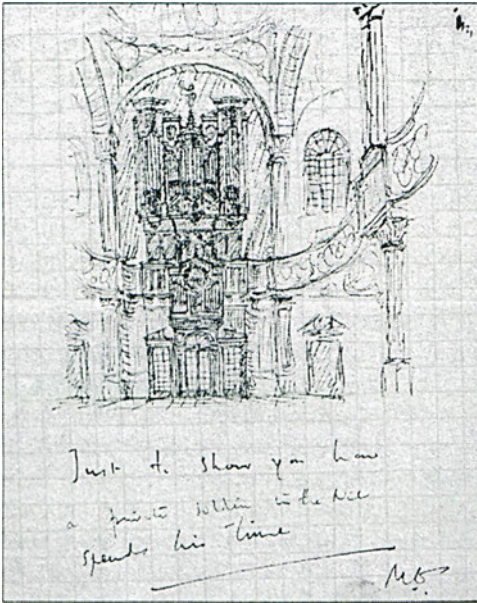 Just to show you how
a private soldier in the
spends his time